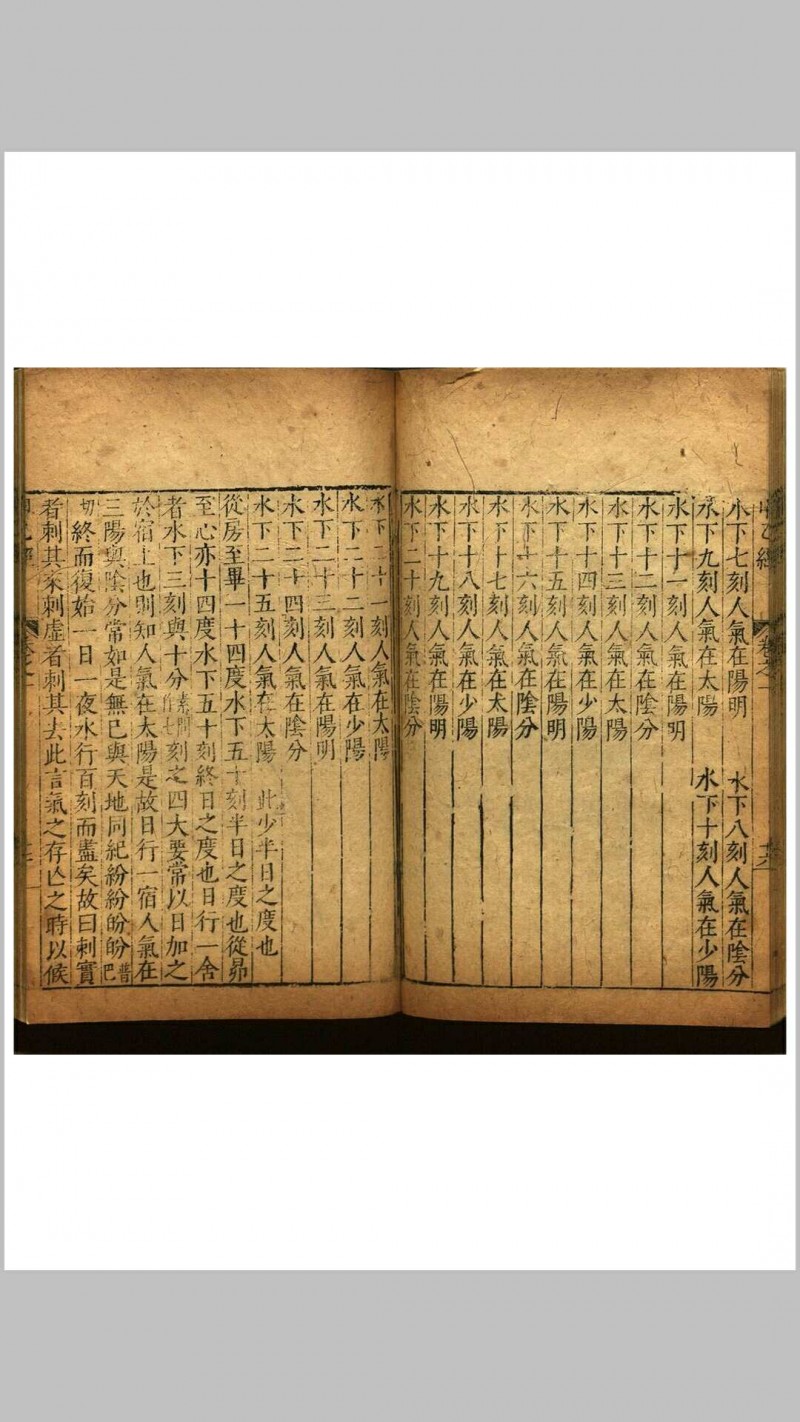 甲乙經 卷之一
水下七刻人氣在陽明 水下八刻人氣在陰分
水下九刻人氣在太陽 水下十刻人氣在少陽
水下十一刻人氣在陽明
水下十二刻人氣在陰分
水下十三刻人氣在太陽
水下十四刻人氣在少陽
水下十五刻人氣在陽明
水下十六刻人氣在陰分
水下十七刻人氣在太陽
水下十八刻人氣在少陽
水下十九刻人氣在陽明
水下二十刻人氣在陰分
水下二十一刻人氣在太陽
水下二十二刻人氣在少陽
水下二十三刻人氣在陽明
水下二十四刻人氣在陰分
水下二十五刻人氣在太陽 此少半日之度也
從房至畢一十四度水下五十刻半日之度也從昴
至心亦十四度水下五十刻終日之度也日行一舍
者水下三刻與十分素問作七刻之四大要常以日加之
於宿上也則知人氣在太陽是故日行一宿人氣在
三陽與陰分常如是無已與天地同紀紛紛盼盼普巴
切終而復始一日一夜水行百刻而盡矣故曰刺實
者刺其來刺虛者刺其去此言氣之存亡之時以候